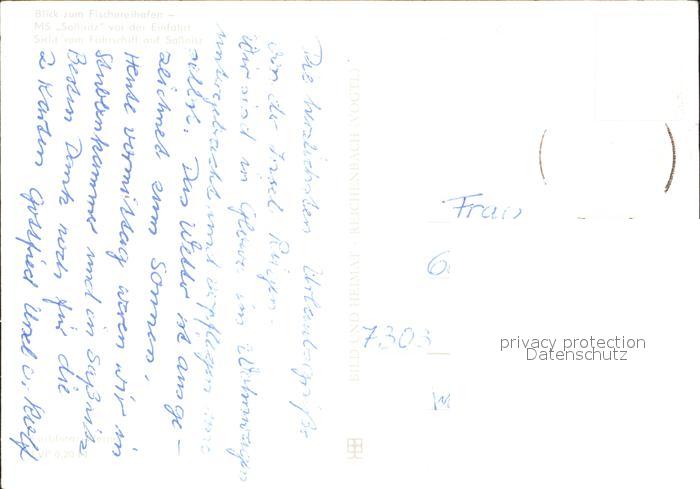 Blick zum Fischereihafen –
MS „Saßnitz" vor der Einfahrt
Sicht vom Fährschiff auf Saßnitz
Die herzlichsten Urlaubsgrüße
von der Insel Rügen.
Wir sind in Glowe im Wohnwagen
untergebracht und verpflegen uns
selbst. Das Wetter ist ausge-
zeichnet zum Sonnen.
Heute vormittag waren wir in
Stubbenkammer und in Saßnitz
Besten Dank noch für die
2 Karten Gottfried Ursel u. Rolf
BILD UND HEIMAT · REICHENBACH (VOGTL)
Frau
6
7303
W
0,20
privacy protection
Datenschutz